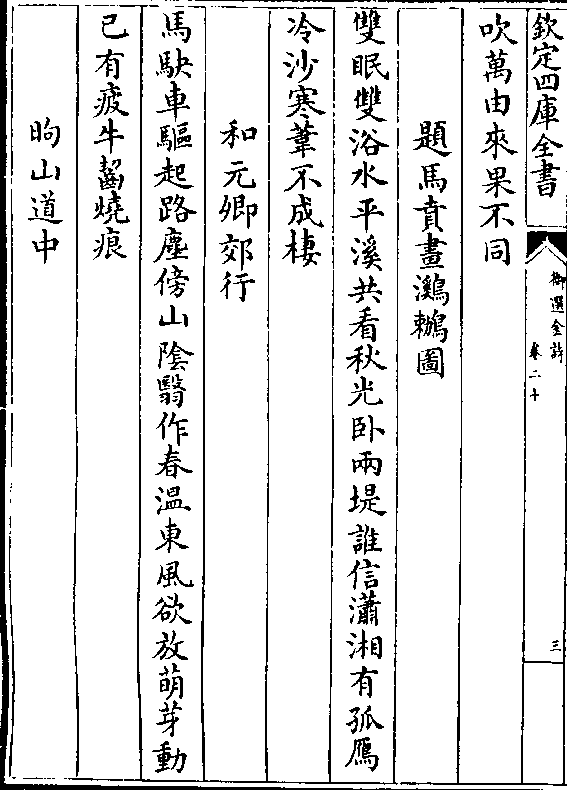 欽定四庫全書
御選金詩
卷二十
三
吹萬由來果不同
題馬賁畫鸂鶒圖
雙眠雙浴水平溪共看秋光卧兩堤誰信瀟湘有孤鴈
冷沙寒葦不成棲
和元卿郊行
馬駃車驅起路塵傍山陰翳作春溫東風欲放萌芽動
已有疲牛齧燒痕
昫山道中